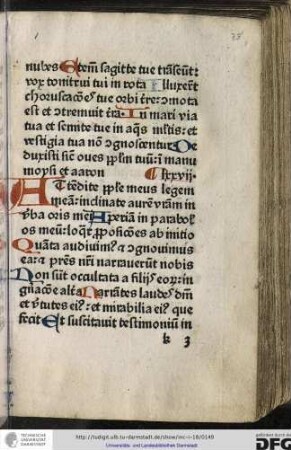 nubes Etem̄ sagitte tue trāseūt:
vox tonitrui tui in rota Illuxer̄t
choruscatōes tue orbi t̄re: ɔmota
est et ɔtremuit t̄ra. In mari via
tua et semite tue in aq̄s ml̄tis: et
vestigia tua nō ɔgnoscentur De
duxisti sic̄ oues pp̄lm tuū: ī manu
moysi et aaron lxxvij.
ATtēdite pp̄le meus legem
meā: inclinate aurē vr̄am in
v̄ba oris mei Aperiā in parabol'
os meū: loq̄r pp̄oſicōes ab initio
Quāta audiuim9 et ɔgnouimus
ea: et pr̄es nr̄i narrauerūt nobis
Non sūt occultata a filijs eorū: in
gn̄acōe alt̄a Narrātes laudes dn̄i
et v̄tutes ei9: et mirabilia ei9 que
fecit Et suscitauit testimoniū in
k 3
http://tudigit.ulb.tu-darmstadt.de/show/inc-i-18/0149
Universitäts- und Landesbibliothek Darmstadt
TECHNISCHE UNIVERSITÄT DARMSTADT
gefördert durch die
DFG